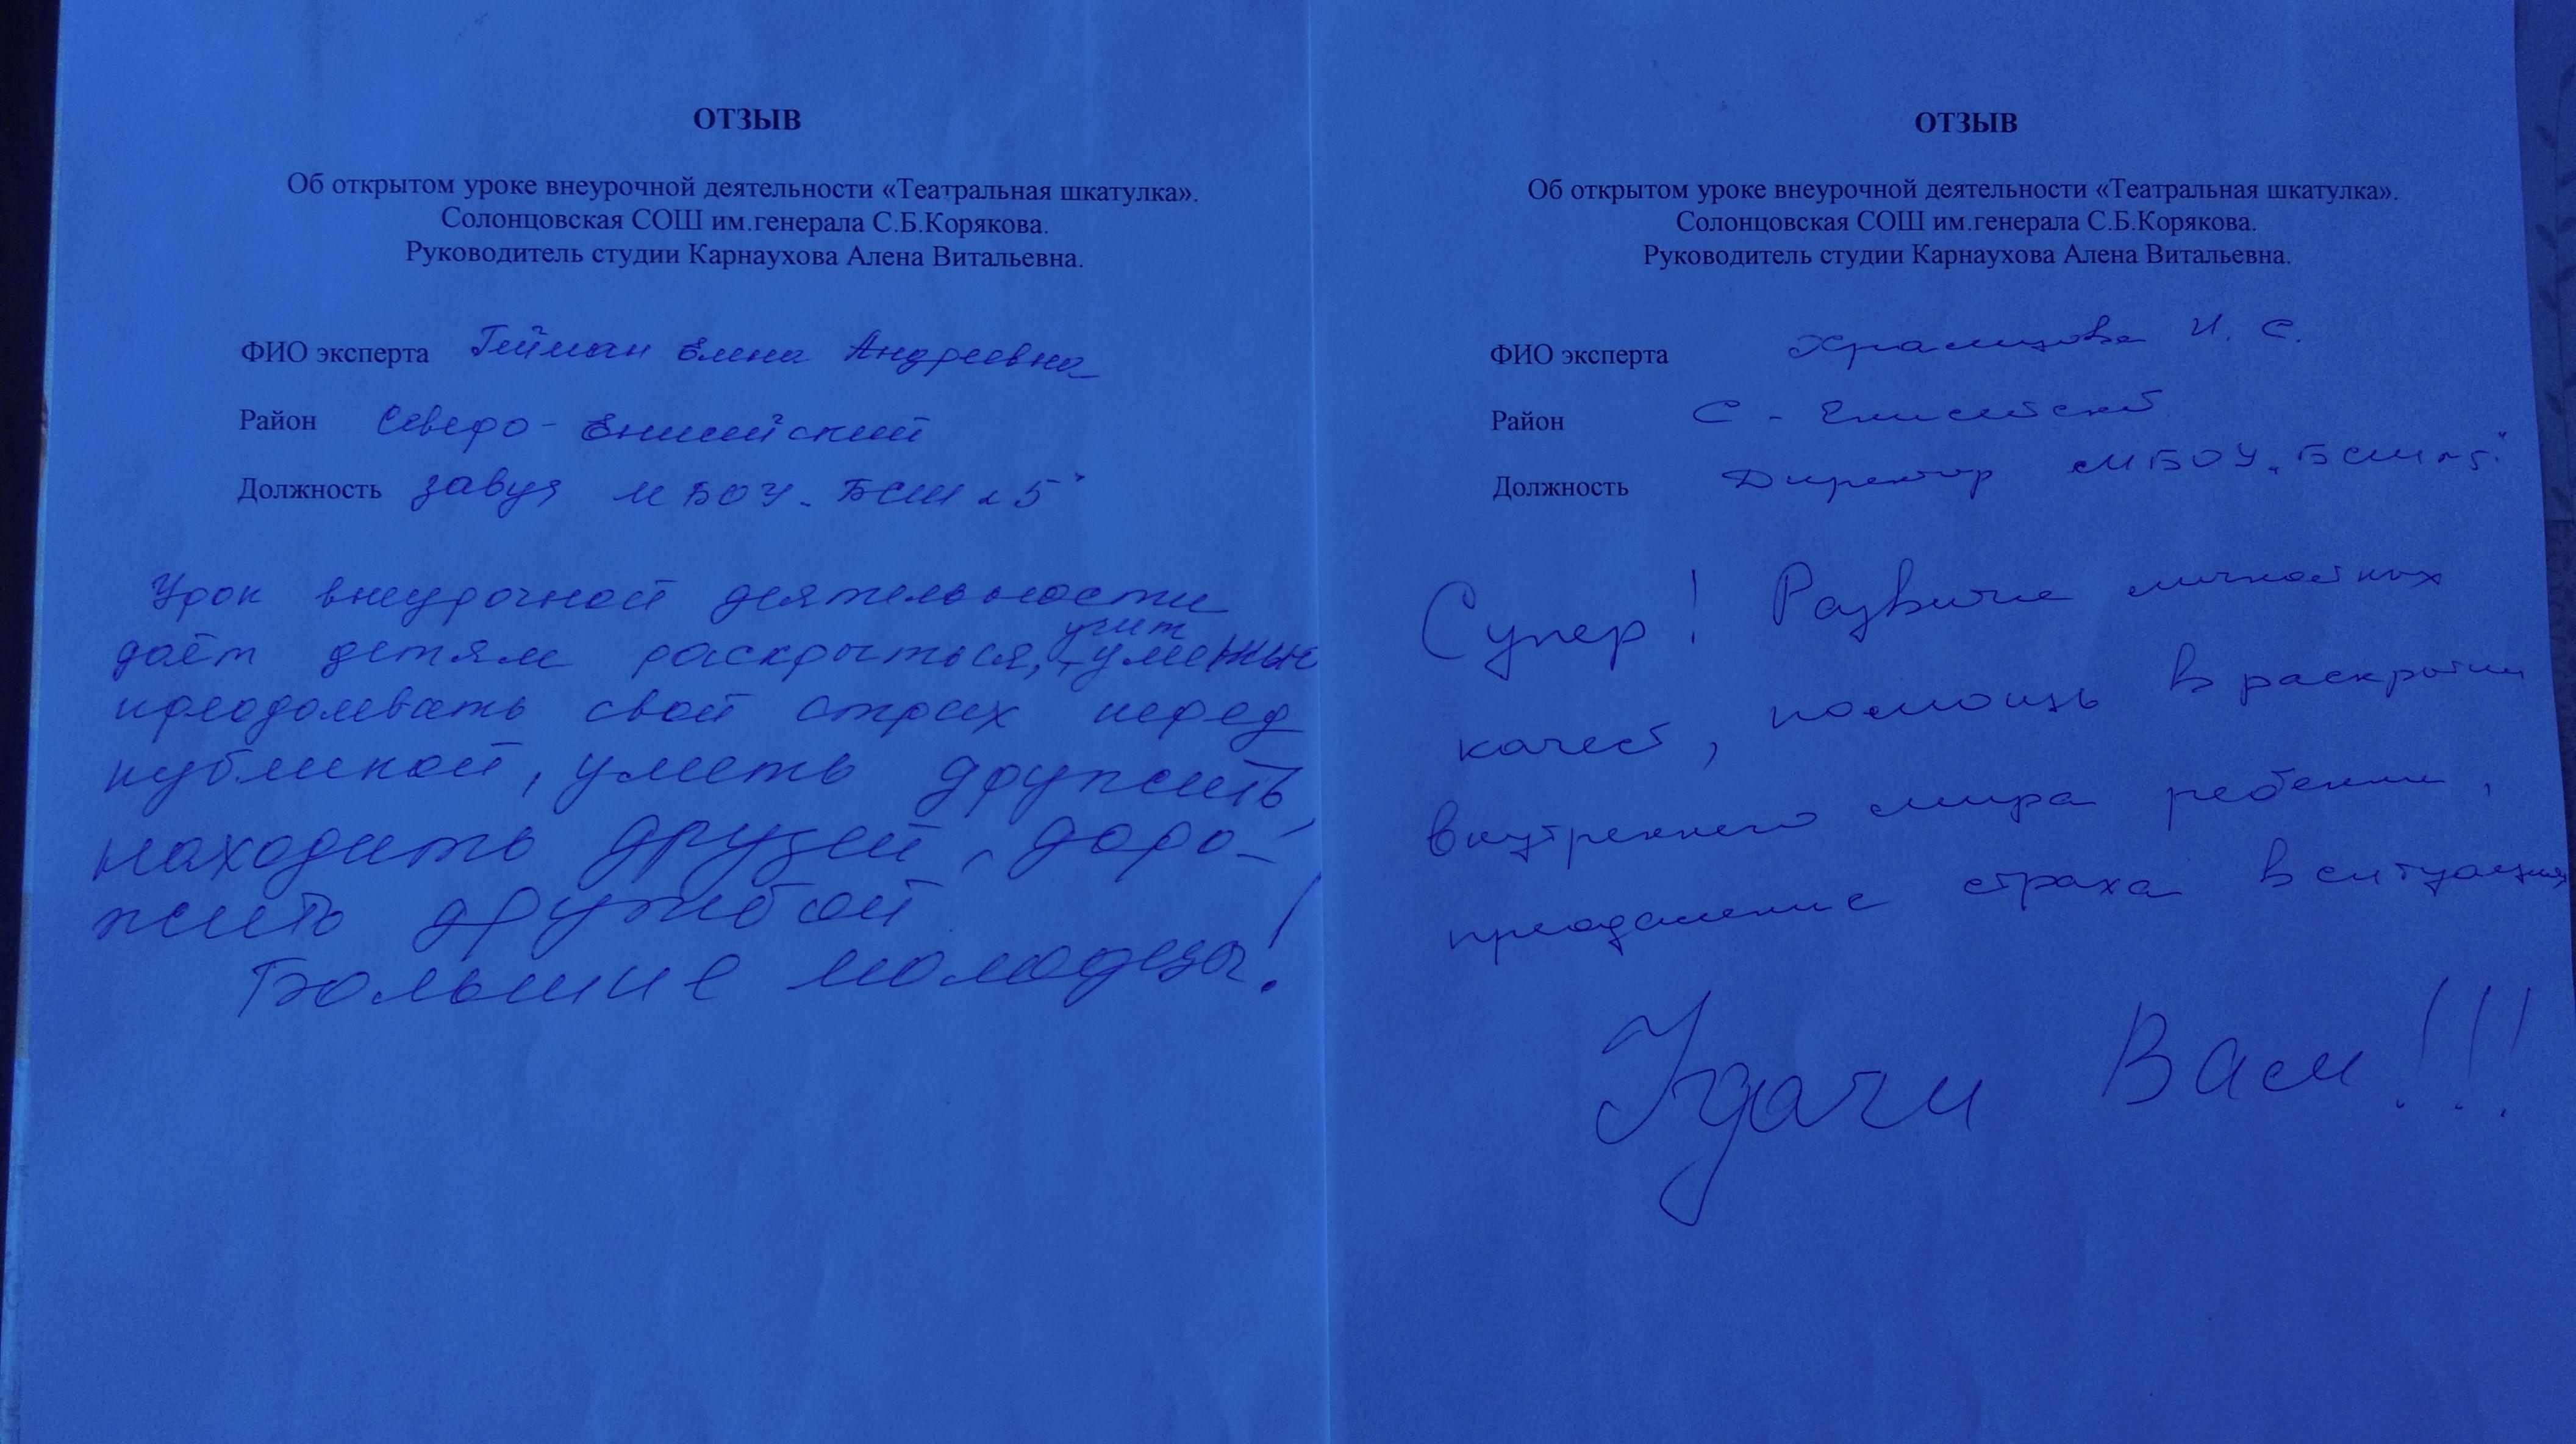 ОТЗЫВ
Об открытом уроке внеурочной деятельности «Театральная шкатулка».
Солонцовская СОШ им.генерала С.Б.Корякова.
Руководитель студии Карнаухова Алена Витальевна.
ФИО эксперта Гейман Елена Андреевна
Район Северо-Енисейский
Должность завуч МБОУ "БСШ №5"
Урок внеурочной деятельности
даёт детям раскрыться, учит
преодолевать свой страх перед
публикой, уметь дружить,
находить друзей, доро-
жить дружбой
Большие молодцы!
ОТЗЫВ
Об открытом уроке внеурочной деятельности «Театральная шкатулка».
Солонцовская СОШ им.генерала С.Б.Корякова.
Руководитель студии Карнаухова Алена Витальевна.
ФИО эксперта Храмцова И. С.
Район С-Енисейский
Должность Директор МБОУ "БСШ №5"
Супер! Развитие личностных
качеств, помощь в раскрытии
внутреннего мира ребенка,
преодоление страха в ситуации
Удачи Вам!!!